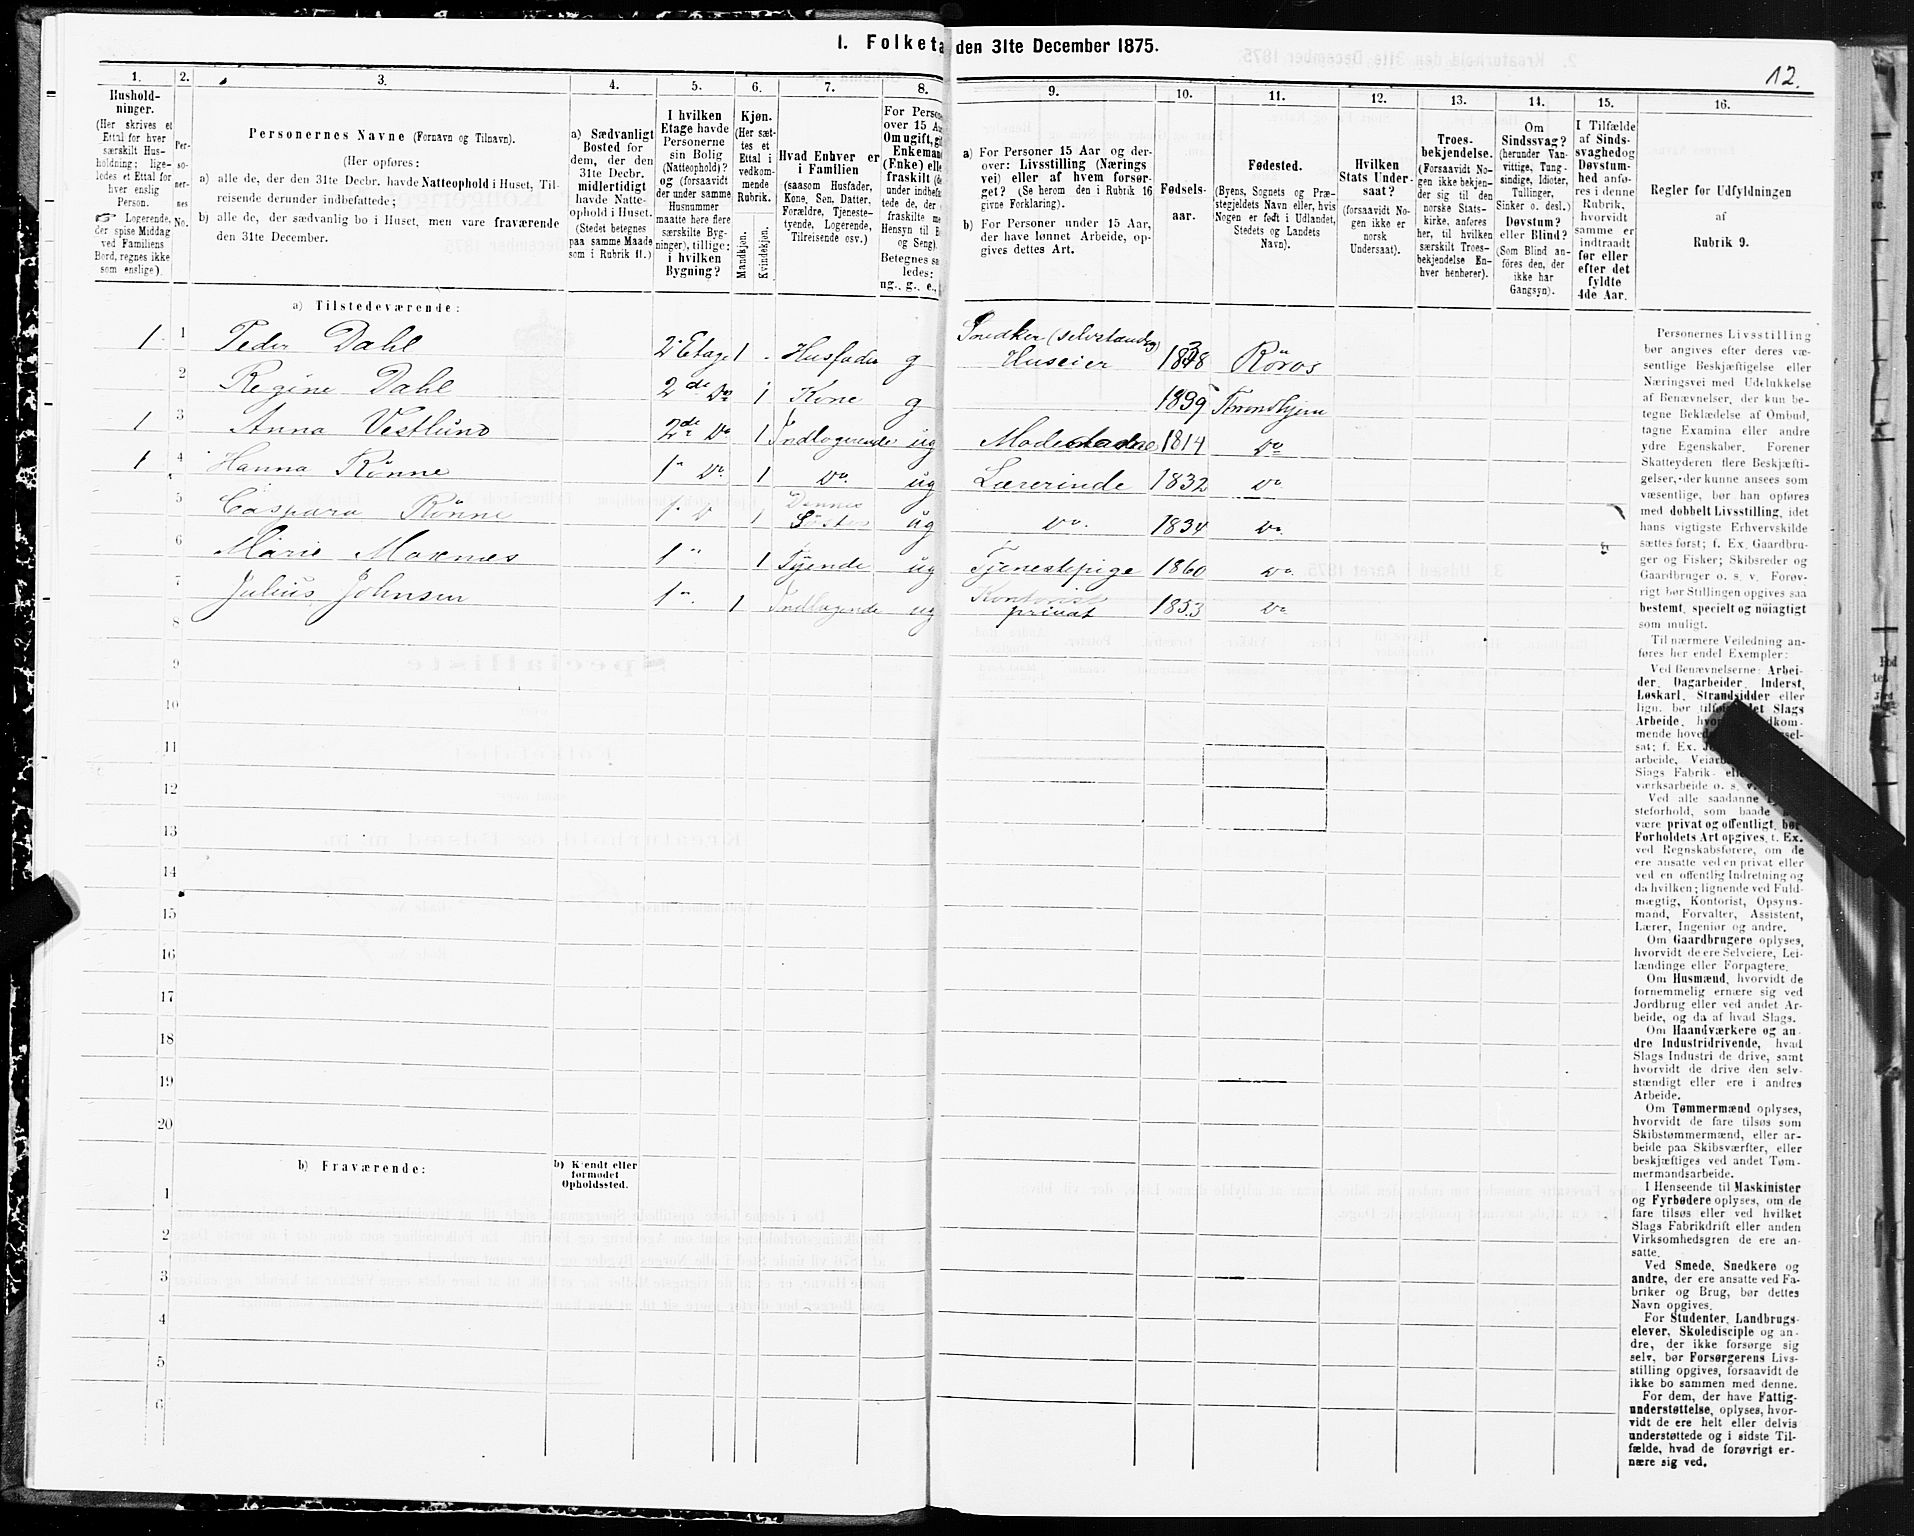 I. Folketa den 31te December 1875.
12.
1.
2.
3.
4.
5.
6.
7.
8.
9.
10.
11.
12.
13.
14.
15.
16.
Hushold-
ninger.
(Her skrives et
Ettal for hver
særskilt Hus-
holdning; lige-
ledes et Ettal for
hver enslig
Person.
☞ Logerende,
der spise Middag
ved Familiens
Bord, regnes ikke
som enslige).
Per-
so-
ner-
nes
No.
Personernes Navne (Fornavn og Tilnavn).
(Her opføres:
a) alle de, der den 31te Decbr. havde Natteophold i Huset, Til-
reisende derunder indbefattede;
b) alle de, der sædvanlig bo i Huset, men vare fraværende
den 31te December.
a) Sædvanligt
Bosted for
dem, der den
31te Decbr.
midlertidigt
havde Natte-
ophold i Huset.
(Stedet betegnes
paa samme Maade
som i Rubrik 11.)
I hvilken
Etage havde
Personerne
sin Bolig
(Natteophold)?
og (forsaavidt
der under samme
Husnummer
maatte høre flere
særskilte Byg-
ninger), tillige:
i hvilken
Bygning?
Kjøn.
(Her sæt-
tes et
Ettal i
vedkom-
mende
Rubrik.
Mandkjøn.
Kvindekjøn.
Hvad Enhver er
i Familien
(saasom Husfader,
Kone, Søn, Datter,
Forældre, Tjeneste-
tyende, Logerende,
Tilreisende osv.)
For Perso
over 15 Aa
Om ugift, g
Enkeman
(Enke) elle
fraskilt (d
under indbef
tede de, der
fraskilte m
Hensyn til B
og Seng).
Betegnes sa
ledes:
ug., g., e.,
a) For Personer 15 Aar og der-
over: Livsstilling (Nærings
vei) eller af hvem forsør-
get? (Se herom den i Rubrik 16
givne Forklaring).
b) For Personer under 15 Aar,
der have lønnet Arbeide, op-
gives dettes Art.
Fødsels-
aar.
Fødested.
(Byens, Sognets og Præ-
stegjeldets Navn eller, hvis
Nogen er født i Udlandet,
Stedets og Landets
Navn).
Hvilken
Stats Under-
saat?
(forsaavidt No-
gen ikke er
norsk
Undersaat).
Troes-
bekjendelse.
(Forsaavidt No-
gen ikke bekjen-
der sig til den
norske Stats-
kirke, anføres
her, til hvilken
særskilt Troes-
bekjendelse En-
hver henhører).
Om
Sindssvag?
(herunder Van-
vittige, Tung-
sindige, Idioter,
Tullinger,
Sinker o. desl.)
Døvstum?
eller Blind?
(Som Blind an-
føres den, der
ikke har
Gangsyn).
I Tilfælde
af Sinds-
svaghed og
Døvstum-
hed anfø-
res i denne
Rubrik,
hvorvidt
samme er
indtraadt
før eller
efter det
fyldte
4de Aar.
Regler for Udfyldningen
af
Rubrik 9.
a) Tilstedeværende:
1 1 Peder Dahl 2 Etage 1 Husfader g Snedker (selvstandig) Huseier Röros
2 Regine Dahl 2de Do 1 Kone g 1839 Throndhjem
1 3 Anna Vestlund 2de Do 1 Indlogerende ug 1814 Do
1 4 Hanna Rönne 1 Do 1 Do. ug Lærerinde 1832 Do
5 Caspara Rönne 1 D 1 Dennes Söster ug Do. 1834 Do.
6 Marie Moxnes 1 " 1 Tyende ug Tjenestepige 1860 Do.
7 Julius Johnsen 1 " 1 Indlogende ug Kontorist privat 1853 Do
8
9
10
11
12
13
14
15
16
17
18
19
20
b) Fraværende:
b) Kjendt eller
formodet
Opholdssted.
1
2
3
4
5
6
Personernes Livsstilling
bør angives efter deres væ-
sentlige Beskjæftigelse eller
Næringsvei med Udelukkelse
af Benævnelser, der kun be-
tegne Beklædelse af Ombud,
tagne Examina eller andre
ydre Egenskaber. Forener
Skatteyderen flere Beskjæfti-
gelser, der kunne ansees som
væsentlige, bør han opføres
med dobbelt Livsstilling, idet
hans vigtigste Erhvervskilde
sættes først; f. Ex. Gaardbru-
ger og Fisker; Skibsreder og
Gaardbruger o. s. v. Forøv-
rigt bør Stillingen opgives saa
bestemt, specielt og nøiagtigt
som muligt.
Til nærmere Veiledning an-
føres her endel Exempler:
Ved Benævnelserne: Arbei-
der, Dagarbeider, Inderst,
Løskarl, Strandsidder eller
lign. bør Slags
Arbeide,
mende
sat; f. Ex.
arbeide,
Slags Fabrik-
værksarbeide o. s. v.
Ved alle saadanne
steforhold, som baade
være privat og offentligt, bør
Forholdets Art opgives, f. Ex.
ved Regnskabsførere, om de
ere ansatte ved en privat eller
ved en offentlig Indretning og
da hvilken; lignende ved Fuld-
mægtig, Kontorist, Opsyns-
mand, Forvalter, Assistent,
Lærer, Ingeniør og andre.
Om Gaardbrugere oplyses,
hvorvidt de ere Selveiere, Lei-
lændinge eller Forpagtere.
Om Husmænd, hvorvidt de
fornemmelig ernære sig ved
Jordbrug eller ved andet Ar-
beide, og da af hvad Slags.
Om Haandværkere og an-
dre Industridrivende, hvad
Slags Industri de drive, samt
hvorvidt de drive den selv-
stændigt eller ere i andres
Arbeide.
Om Tømmermænd oplyses,
hvorvidt de fare tilsøs som
Skibstømmermænd, eller ar-
beide paa Skibsværfter, eller
beskjæftiges ved andet Tøm-
mermandsarbeide.
I Henseende til Maskinister
og Fyrbødere oplyses, om de
fare tilsøs eller ved hvilket
Slags Fabrikdrift eller anden
Virksomhedsgren de ere an-
satte.
Ved Smede, Snedkere og
andre, der ere ansatte ved Fa-
briker og Brug, bør dettes
Navn opgives.
For Studenter, Landbrugs-
elever, Skoledisciple og an-
dre, der ikke forsørge sig
selv, bør Forsørgerens Livs-
stilling opgives, forsaavidt de
ikke bo sammen med denne.
For dem, der have Fattig-
understøttelse, oplyses, hvor-
vidt de ere helt eller delvis
understøttede og i sidste Til-
fælde, hvad de forøvrigt er-
nære sig ved.